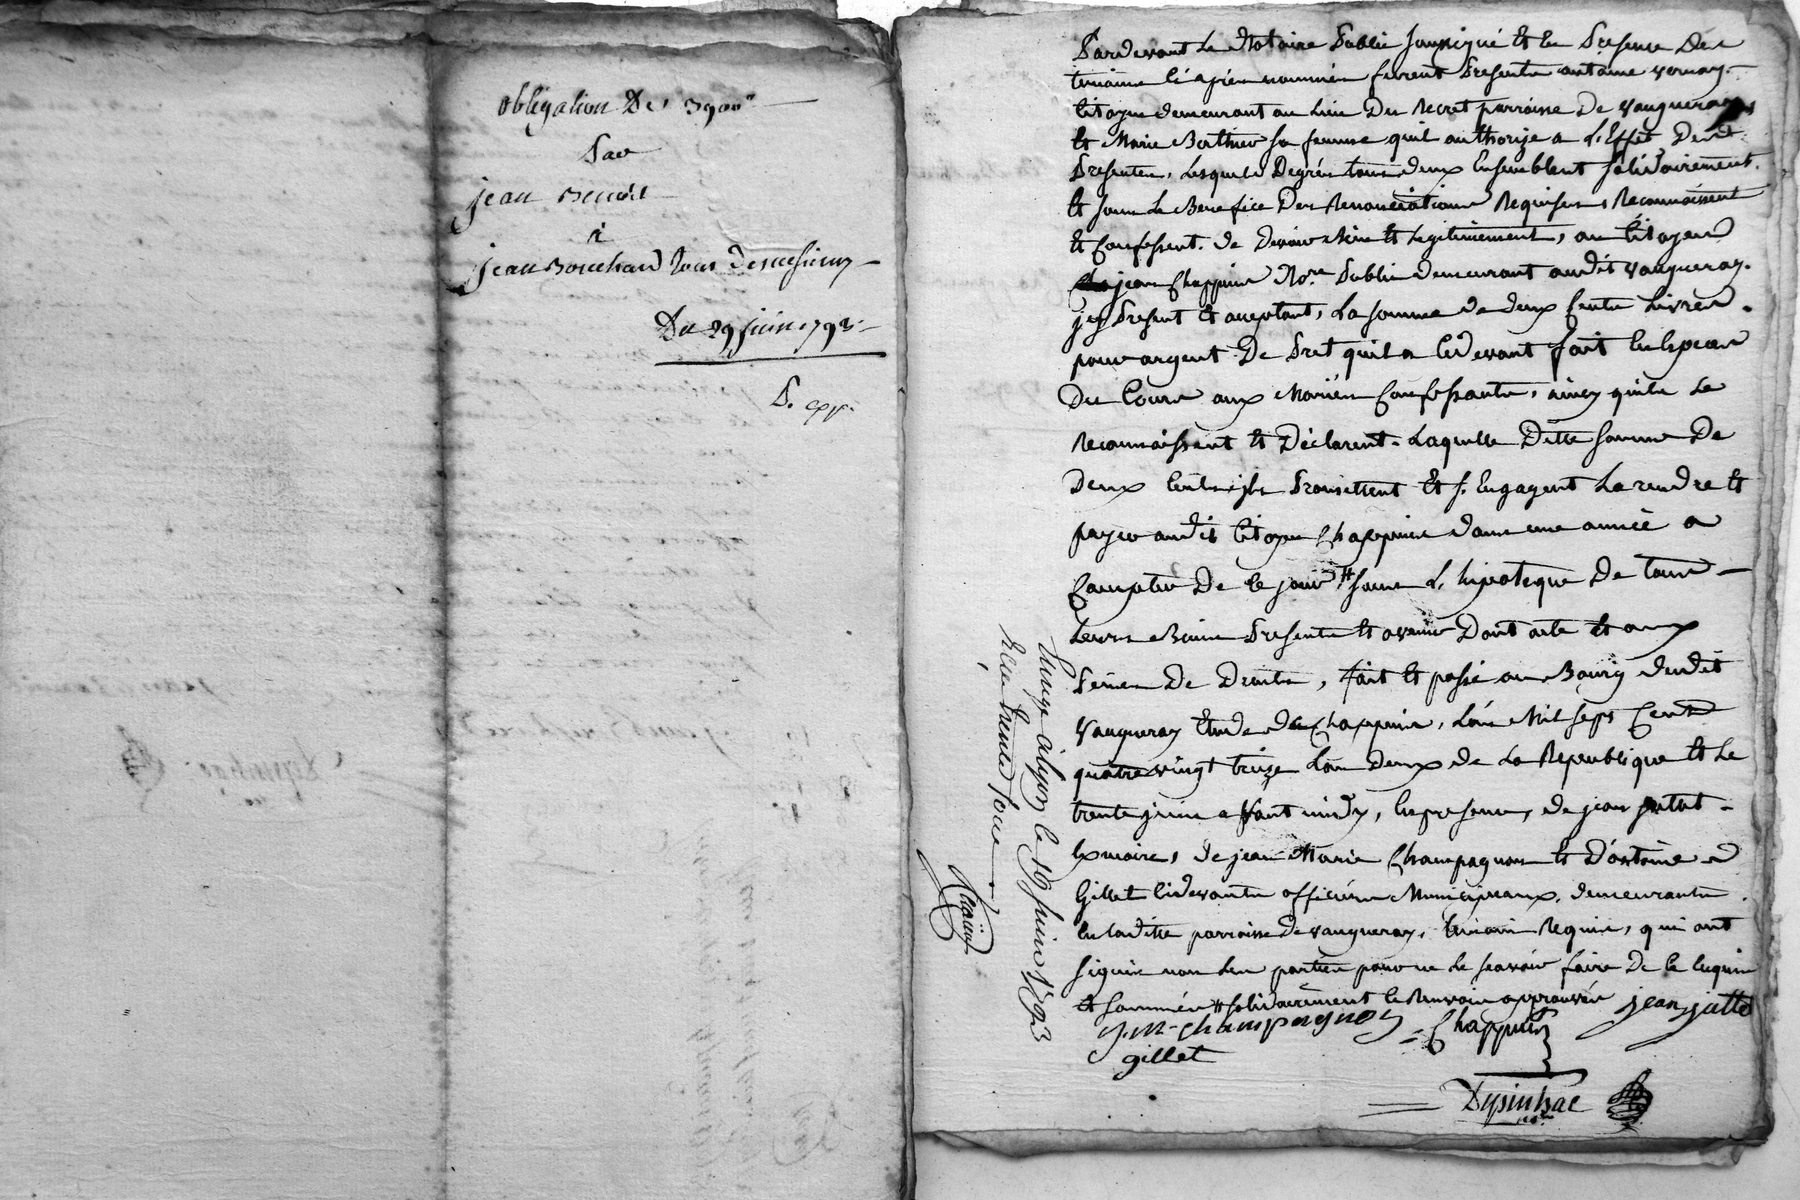 obligation De 3900tt
Par
jean Benoit
à
jean Bouchard
Du 29 juin 1793
P. exp.
Pardevant Le Notaire Public soussigné Et En Presence Des
temoins Ci après nommés furent Presents antoine
Citoyen demeurant au Lieu Du recret parroisse De vaugneray
Et Marie Berthier sa femme quil authorize a L'Effet Des
Presentes, Lesquels De gré tous deux Ensemblent solidairement
Et sous Le Benefice Des Renonciations Requises, Reconnoissent
Et Confessent de devoir bien Et Legitimement, au Citoyen
jean Chappuis No.re Public demeurant audit vaugneray
jcy Present Et acceptant, La somme de deux Cents Livres
pour argent De Pret quil a Cidevant fait En Especes
Du Cours aux Mariés Confessants, ainsy quils Le
reconnoissent Et Déclarent. Laquelle Ditte somme De
Deux Cents ils Promettent Et s'Engagent La rendre Et
payer audit Citoyen Chappuis dans une année a
Compter De Ce jour # sous L'hipoteque De tous
Leurs Biens Presents Et avenir Dont acte Et aux
Peines De Droits, fait Et passé au Bourg dudit
vaugneray Etude de Chappuis, L'an Mil sept Cent
quatre vingt treize L'an Deux de La Republique Et Le
trente juin avant midy, En presence, de jean
de jean Marie Champagnon Et D'antoine
Gillet Cidevants officiers Municipeaux, demeurants
En laditte parroisse De vaugneray, temoins Requis, qui ont
signés non Les parties pour ne Le scavoir faire De Ce Enquis
Et sommés # solidairement Le Renvoi approuvés jean jatte
j.m. champagnon Chappuis
gillet
Dysinhac
à Lyon le 19 juin 1793